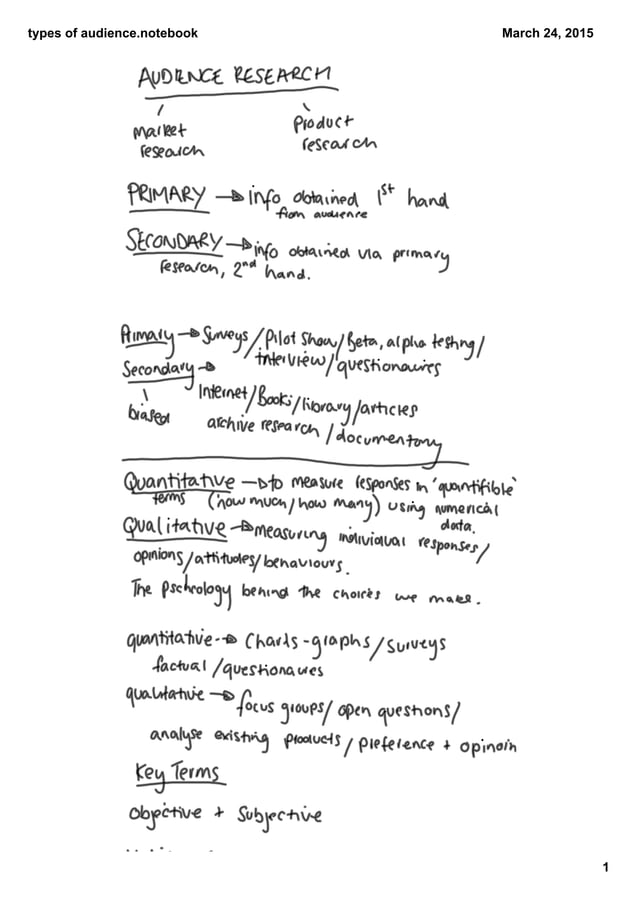 types of audience.notebook
March 24, 2015
AUDIENCE RESEARCH
market
research
Product
research
PRIMARY → info obtained 1st hand
from audience
SECONDARY → info obtained via primary
research, 2nd hand.
Primary → Surveys/Pilot Show/Beta, alpha testing/
interview/questionaires
Secondary →
biased
Internet/Books/library/articles
archive research/documentary
Quantitative → to measure responses in 'quantifible'
terms (how much/how many) using numerical
data.
Qualitative → measuring individual responses/
opinions/attitudes/behaviours.
The Pschology behind the choices we make.
quantitative → Charts-graphs/Surveys
factual/questionaires
qualitative → focus groups/open questions/
analyse existing products/preference + opinoin
Key Terms
Objective + Subjective
1